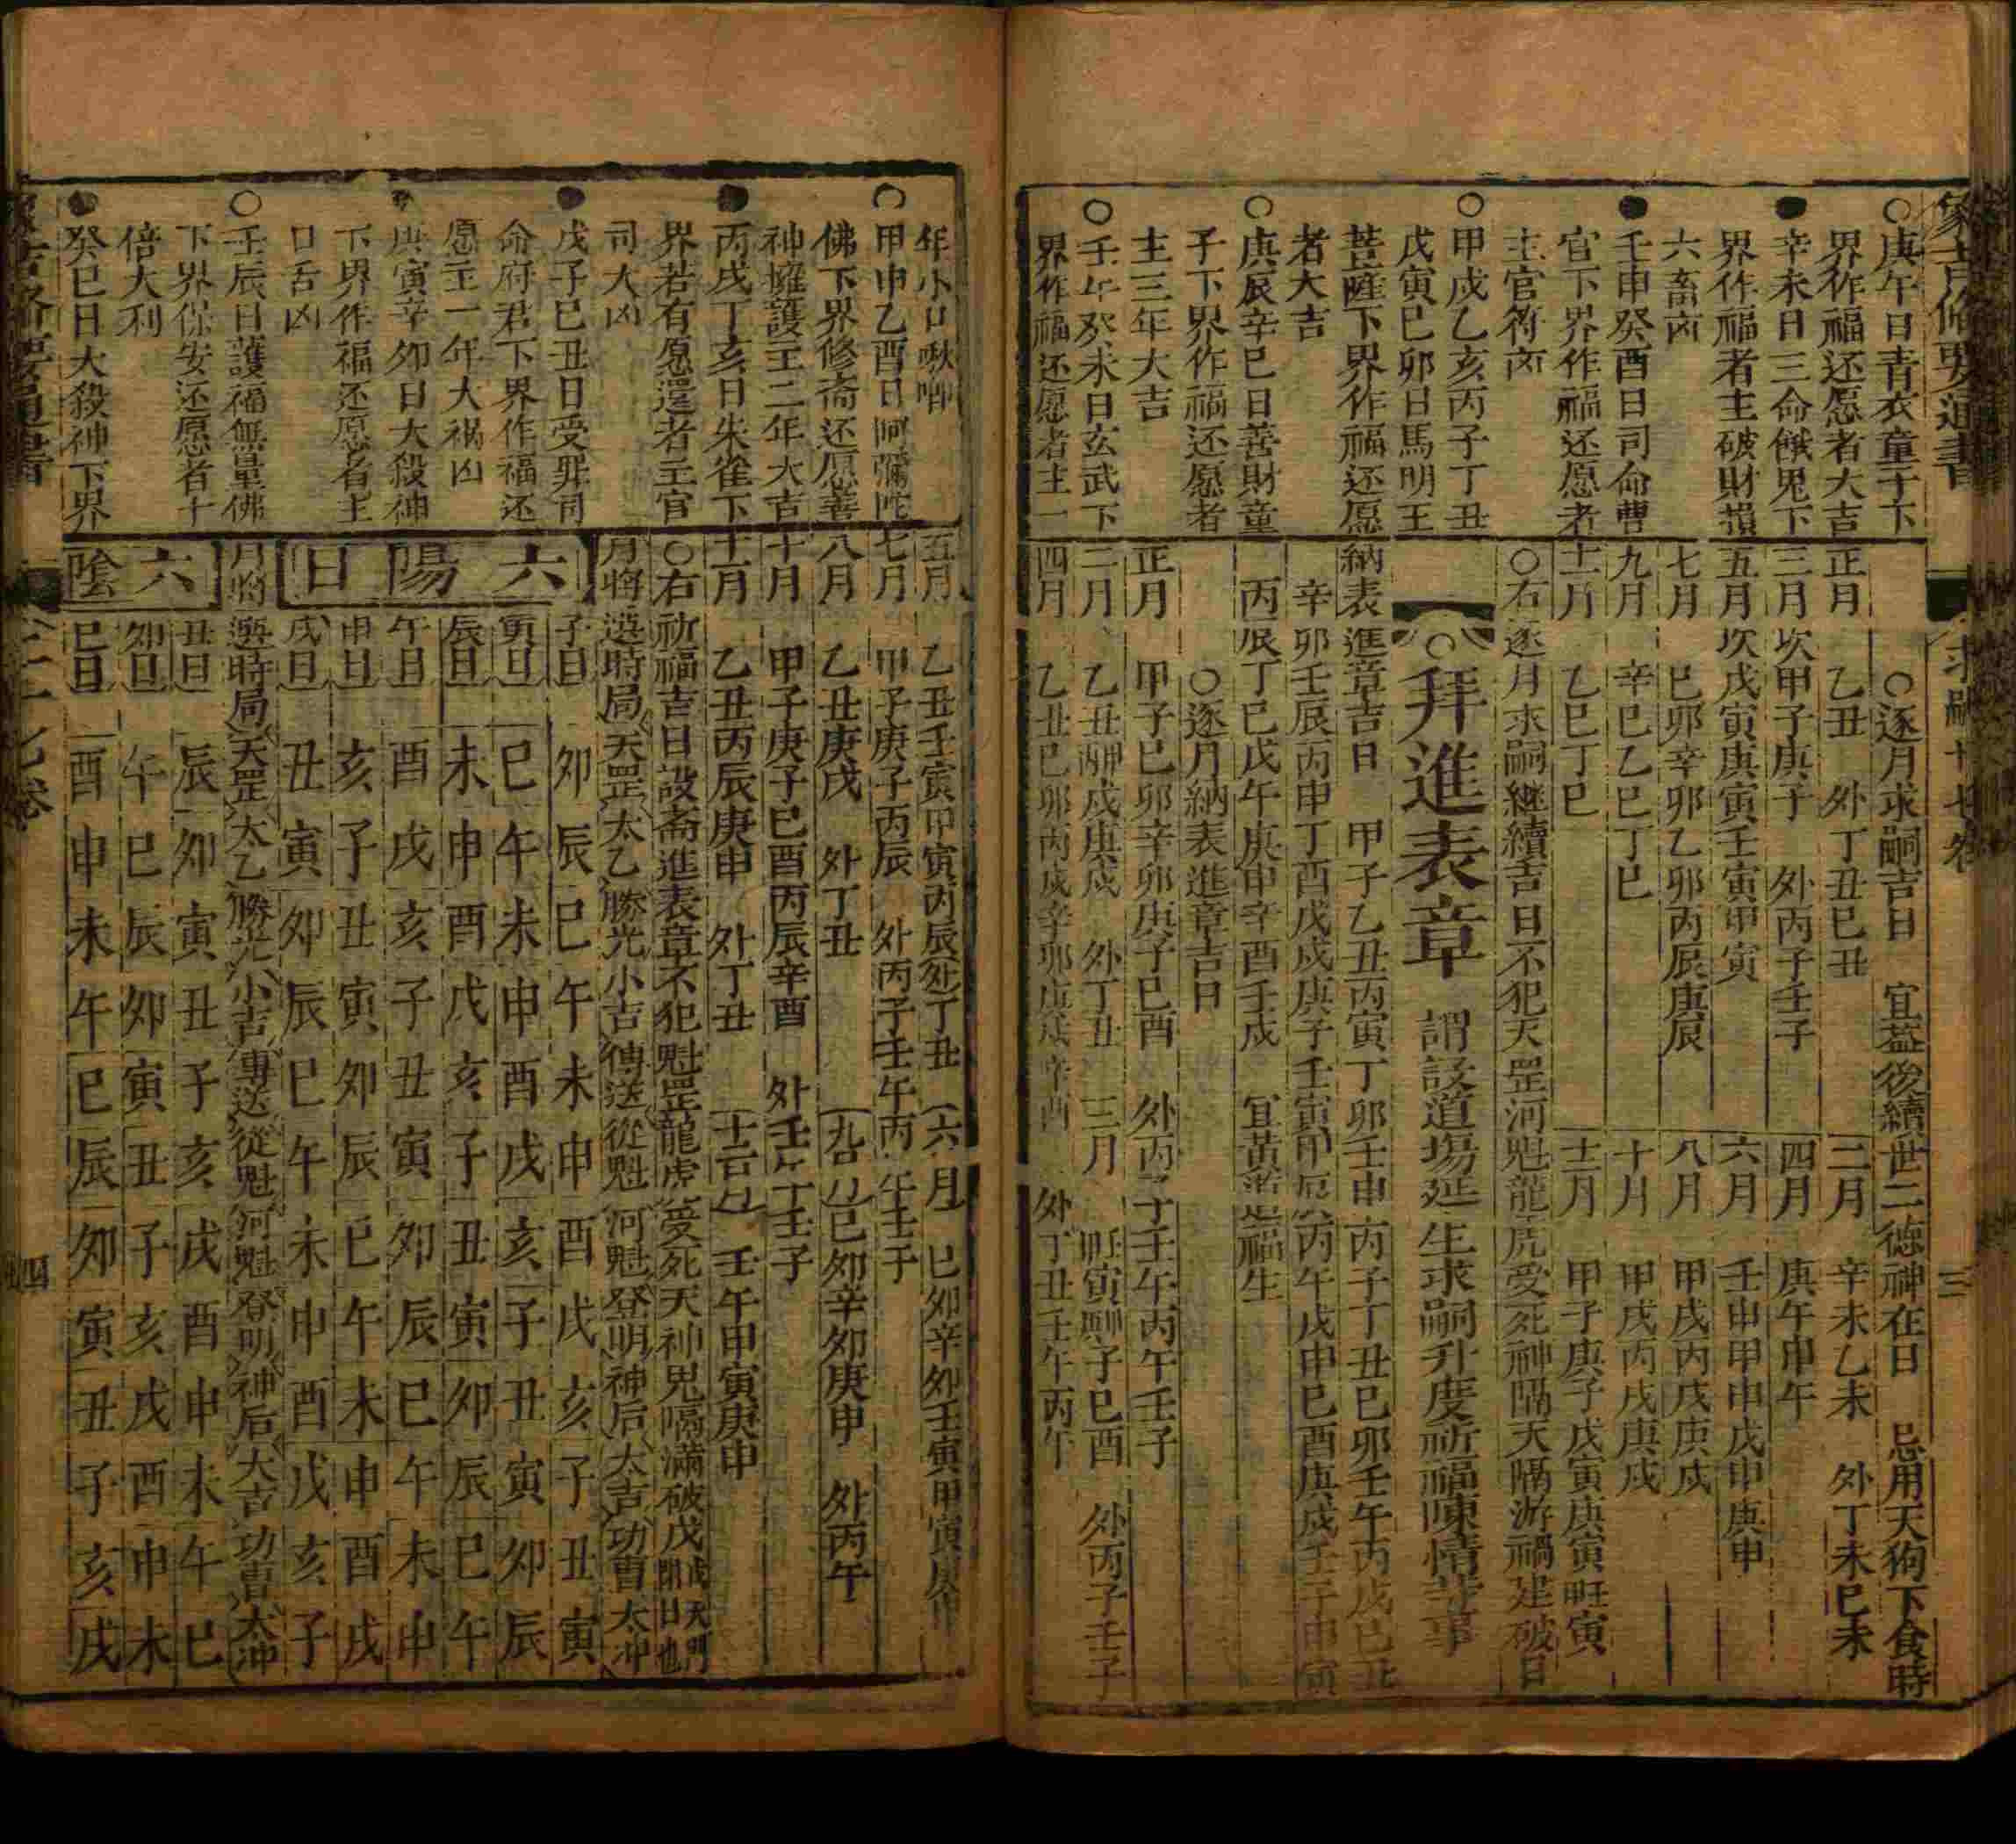 庚午日青衣童子下
界作福还愿者大吉
辛未日三命餓鬼下
界作福者主破財損
六畜凶
壬申癸酉日司命曹
官下界作福还愿者
主官符凶
甲戌乙亥丙子丁丑
戊寅巳卯日馬明王
菩薩下界作福还愿
者大吉
庚辰辛巳日善財童
子下界作福还愿者
主三年大吉
壬午癸未日玄武下
界作福还愿者主一
○逐月求嗣吉日 宜益後續世二德神在日 忌用天狗下食時
正月 乙丑 外丁丑巳丑 二月 辛未乙未 外丁未巳未
三月 坎甲子庚子 外丙子壬子 四月 庚午甲午
五月 坎戊寅庚寅壬寅甲寅 六月 壬申甲申戊申庚申
七月 巳卯辛卯乙卯丙辰庚辰 八月 甲戌丙戌庚戌
九月 辛巳乙巳丁巳 十月 甲戌丙戌庚戌
十一月 乙巳丁巳 十二月 甲子庚子戊寅庚寅 寅
○右逐月求嗣継續吉日不犯天罡河魁龍虎受死神隔天隔游禍建破日
拜進表章 謂設道場延生求嗣升度祈福陳情等事
納表進章吉日 甲子乙丑丙寅丁卯壬申丙子丁丑巳卯壬午丙戌巳丑
辛卯壬辰丙申丁酉戊戌庚子壬寅甲辰 丙午戊申巳酉庚戌壬子甲寅
丙辰丁巳戊午庚申辛酉壬戌 宜黃道 福生
○逐月納表進章吉日
正月 甲子巳卯辛卯庚子巳酉 外丙子壬午丙午壬子
二月 乙丑 戌庚戌 外丁丑 三月 寅 子巳酉 外丙子壬子
四月 乙丑巳卯丙戌辛卯庚戌辛酉 外丁丑壬午丙午
年小口啾唧
甲申乙酉日阿彌陀
佛下界修斋还愿善
神擁護主二年大吉
丙戌丁亥日朱雀下
界若有愿還者主官
司大凶
戊子巳丑日受罪司
命府君下界作福还
愿主一年大禍凶
庚寅辛卯日大殺神
下界作福还愿者主
口舌凶
壬辰日護福無量佛
下界保安还愿者十
倍大利
癸巳日大殺神下界
五月 乙丑壬寅甲寅丙辰 丁丑 六月 巳卯辛卯壬寅甲寅庚申
七月 甲子庚子丙辰 外丙子壬午丙午壬子
八月 乙丑庚戌 外丁丑 九月 巳卯辛卯庚申 外丙午
十月 甲子庚子巳酉丙辰辛酉 外壬午 壬子
十一月 乙丑丙辰庚申 外丁丑 十二月 壬午甲寅庚申
○右祈福吉日設斋進表章不犯魁罡龍虎受死天神鬼隔滿破戊戌天門閉日也
月將 選時局 天罡 太乙 勝光 小吉 傳送 從魁 河魁 登明 神后 大吉 功曹 太冲
六陽日
子日 卯辰巳午未申酉戌亥子丑寅
寅日 巳午未申酉戌亥子丑寅卯辰
辰日 未申酉戌亥子丑寅卯辰巳午
午日 酉戌亥子丑寅卯辰巳午未申
申日 亥子丑寅卯辰巳午未申酉戌
戌日 丑寅卯辰巳午未申酉戌亥子
月將 選時局 天罡 太乙 勝光 小吉 傳送 從魁 河魁 登明 神后 大吉 功曹 太冲
六陰
丑日 辰卯寅丑子亥戌酉申未午巳
卯日 午巳辰卯寅丑子亥戌酉申未
巳日 酉申未午巳辰卯寅丑子亥戌
四